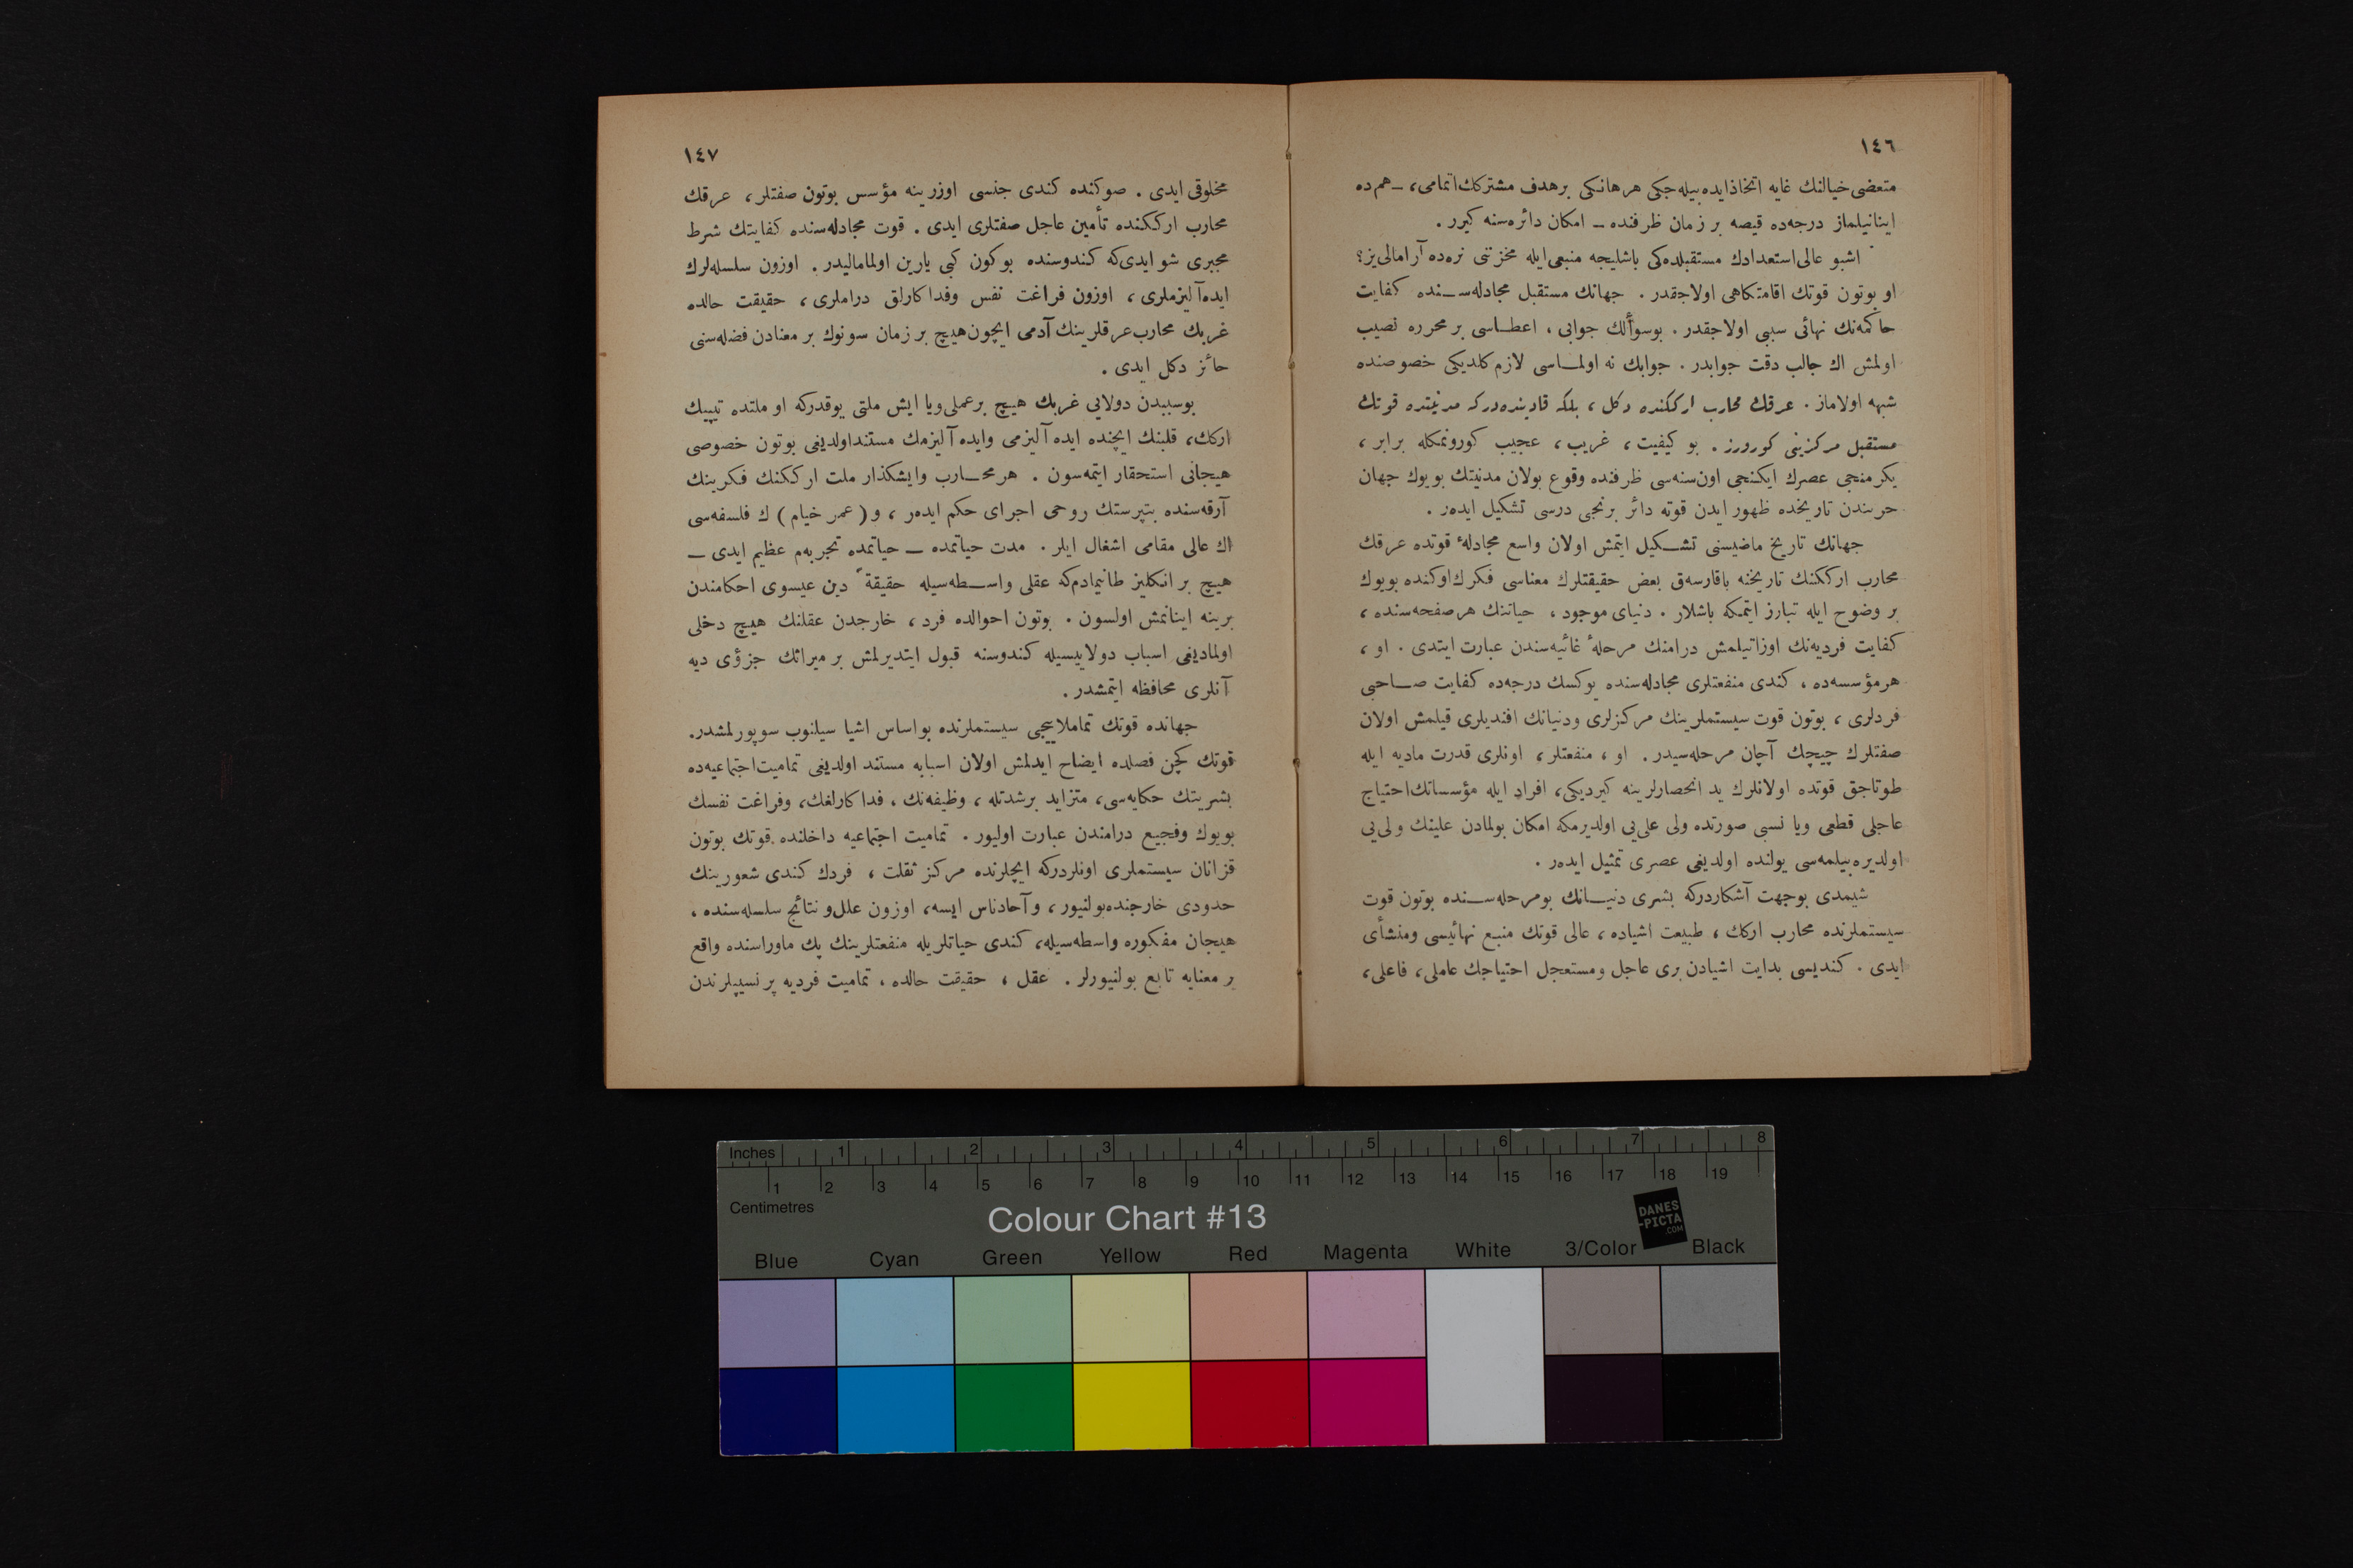 ١٤٦
متعضی خیالنك غایه اتخاذ ایده بیله جکی هر هانکی بر هدف مشترکك اتمامی، ــ هم ده
اینانیلماز درجه ده قیصه بر زمان ظرفنده ــ امکان دائره سنه کیرر .
اشبو عالی استعدادك مستقبلده کی باشلیجه منبعی ایله مخزننی نره ده آرامالی یز؟
او بوتون قوتك اقامتکاهی اولاجقدر . جهانك مستقبل مجادله سنده کفایت
حاکمه نك نهائی سببی اولاجقدر . بو سوألك جوابی ، اعطاسی بر محرره نصیب
اولمش اك جالب دقت جوابدر . جوابك نه اولماسی لازم کلدیکی خصوصنده
شبهه اولاماز . عرقك محارب ارککنده دکل ، بلکه قادیننده درکه مدنیتده قوتك
مستقبل مرکزینی کورورز . بو کیفیت ، غریب ، عجیب کورونمکله برابر ،
یکرمنجی عصرك ایکنجی اون سنه سی ظرفنده وقوع بولان مدنیتك بویوك جهان
حربندن تاریخده ظهور ایدن قوته دائر برنجی درسی تشکیل ایده ر .
جهانك تاریخ ماضیسنی تشکیل ایتمش اولان واسع مجادلهٔ قوتده عرقك
محارب ارککنك تاریخنه باقارسه ق بعض حقیقتلرك معناسی فکرك اوکنده بویوك
بر وضوح ایله تبارز ایتمکه باشلار . دنیای موجود ، حیاتنك هر صفحه سنده ،
کفایت فردیه نك اوزاتیلمش درامنك مرحلهٔ غائیه سندن عبارت ایتدی . او ،
هر مؤسسه ده ، کندی منفعتلری مجادله سنده یوکسك درجه ده کفایت صاحبی
فردلری ، بوتون قوت سیستملرینك مرکزلری و دنیانك افندیلری قیلمش اولان
صفتلرك چیچك آچان مرحله سیدر . او ، منفعتلر ، اونلری قدرت مادیه ایله
طوتاجق قوتده اولانلرك ید انحصارلرینه کیردیکی ، افراد ایله مؤسساتك احتیاج
عاجلی قطعی ویا نسبی صورتده ولی علی یی اولدیرمکه امکان بولمادن علینك ولی یی
اولدیره بیلمه سی یولنده اولدیغی عصری تمثیل ایده ر .
شیمدی بوجهت آشکاردرکه بشری دنیانك بو مرحله سنده بوتون قوت
سیستملرنده محارب ارکك ، طبیعت اشیاده ، عالی قوتك منبع نهائیسی ومنشأی
ایدی . کندیسی بدایت اشیادن بری عاجل ومستعجل احتیاجك عاملی ، فاعلی ،
١٤٧
مخلوقی ایدی . صوکنده کندی جنسی اوزرینه مؤسس بوتون صفتلر ، عرقك
محارب ارککنده تأمین عاجل صفتلری ایدی . قوت مجادله سنده کفایتك شرط
مجبری شو ایدی که کندوسنده بوکون کبی یارین اولمامالیدر . اوزون سلسله لرك
ایده آلیزملری ، اوزون فراغت نفس وفداکارلق دراملری ، حقیقت حالده
غربك محارب عرقلرینك آدمی ایچون هیچ بر زمان سونوك بر معنادن فضله سنی
حائز دکل ایدی .
بوسببدن دولایی غربك هیچ برعملی ویا ایش ملتی یوقدرکه او ملتده تیپیك
ارکك ، قلبنك ایچنده ایده آلیزمی وایده آلیزمك مستند اولدیغی بوتون خصوصی
هیجانی استحقار ایتمه سون . هر محارب وایشکذار ملت ارککنك فکرینك
آرقه سنده بتپرستك روحی اجرای حکم ایده ر ، و (عمر خیام) ك فلسفه سی
اك عالی مقامی اشغال ایلر . مدت حیاتمده ــ حیاتمده تجربه م عظیم ایدی ــ
هیچ بر انکلیز طانیمادم که عقلی واسطه سیله حقیقةً دین عیسوی احکامندن
برینه اینانمش اولسون . بوتون احوالده فرد ، خارجدن عقلنك هیچ دخلی
اولمادیغی اسباب دولاییسیله کندوسنه قبول ایتدیرلمش بر میراثك جزؤی دیه
آنلری محافظه ایتمشدر .
جهانده قوتك تماملاییجی سیستملرنده بو اساس اشیا سیلنوب سوپورلمشدر.
قوتك کچن فصلده ایضاح ایدلمش اولان اسبابه مستند اولدیغی تمامیت اجتماعیه ده
بشریتك حکایه سی ، متزاید بر شدتله ، وظیفه نك ، فداکارلغك ، وفراغت نفسك
بویوك وفجیع درامندن عبارت اولیور . تمامیت اجتماعیه داخلنده قوتك بوتون
قزانان سیستملری اونلردرکه ایچلرنده مرکز ثقلت ، فردك کندی شعورینك
حدودی خارجنده بولنیور ، و آحاد ناس ایسه ، اوزون علل و نتائج سلسله سنده ،
هیجان مفکوره واسطه سیله ، کندی حیاتلریله منفعتلرینك پك ماوراسنده واقع
بر معنایه تابع بولنیورلر . عقل ، حقیقت حالده ، تمامیت فردیه پرنسیپلرندن
Inches 1 2 3 4 5 6 7 8
1 2 3 4 5 6 7 8 9 10 11 12 13 14 15 16 17 18 19
Centimetres
Colour Chart #13
DANES
-PICTA
.COM
Blue Cyan Green Yellow Red Magenta White 3/Color Black